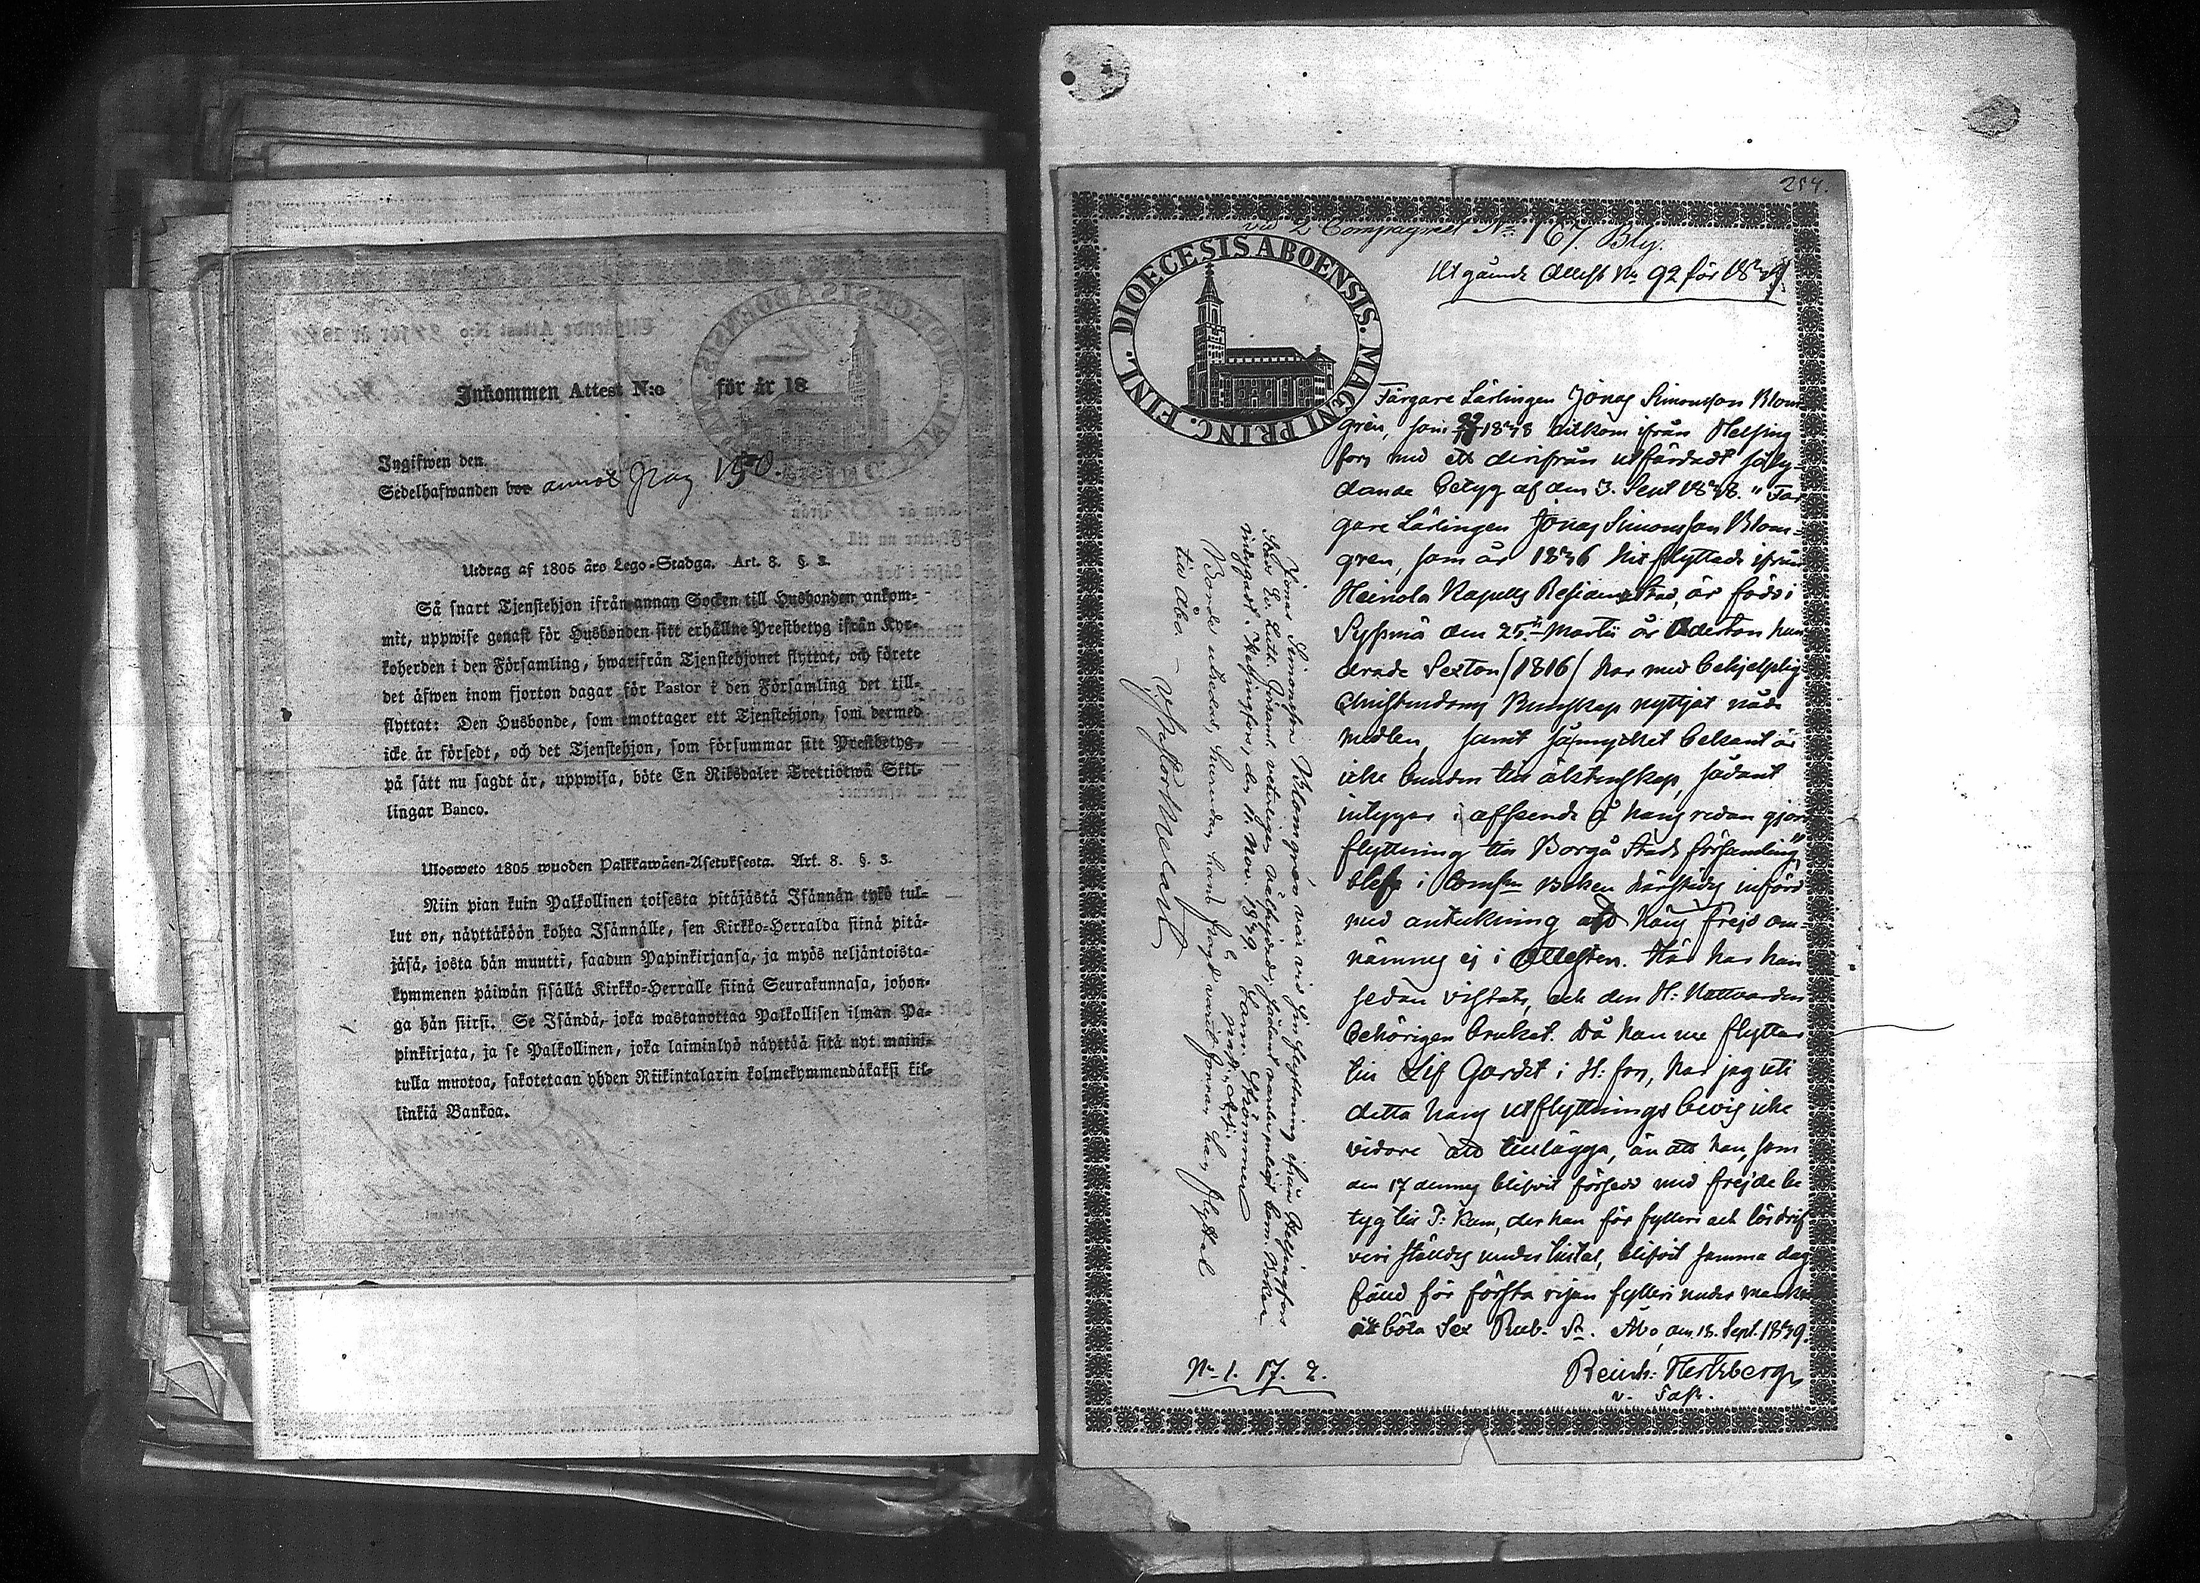 Inkommen Attest N:o för år 18
Ingifwen den
Sedelhafwanden bor annot 150.
Utdrag af 1805 års Lego-Stadga. Art. 8. §. 3.
Så snart Tjenstehjon ifrån annan Socken till Husbonden ankom-
mit, uppwise genast för Husbonden sitt erhållne Prestbetyg ifrån Kyr-
koherden i den Församling, hwarifrån Tjenstehjonet flyttat, och förete
det äfwen inom fjorton dagar för Pastor i den Församling det till-
flyttat: Den Husbonde, som emottager ett Tjenstehjon, som dermed
icke är försedt, och det Tjenstehjon, som försummar sitt Prestbetyg,
på sätt nu sagdt är, uppwisa, böte En Riksdaler Trettiotwå Skil-
lingar Banco.
Ulosweto 1805 wuoden Palkkawäen-Asetuksesta. Art. 8. §. 3.
Niin pian kuin Palkollinen toisesta pitäjästä Isännän tykö tul-
lut on, näyttäköön kohta Isännälle, sen Kirkko-Herralda siinä pitä-
jäsä, josta hän muutti, saadun Papinkirjansa, ja myös neljäntoista-
kymmenen päiwän sisällä Kirkko-Herralle siinä Seurakunnasa, johon-
ga hän siirsi. Se Isändä, joka wastanottaa Palkollisen ilman Pa-
pinkirjata, ja se Palkollinen, joka laiminlyö näyttää sitä nyt maini-
tulla muotoa, sakotetaan yhden Riikintalarin kolmekymmendäkaksi kil-
linkiä Bankoa.
254.
vid 2 Compagniet No 167. Bly.
Utgående Attest No 92 för 1839.
DIOECESIS ABOENSIS. MAGNI PRINC. FINL.
Färgare Lärlingen Jonas Simonsson Blom-
gren, som 1838 hitkom ifrån Helsing
fors med ett derifrån utfärdadt följ-
dande betyg af den 3. Sept 1838. "Fär
gare Lärlingen Jonas Simonsson Blom-
gren, som år 1836 hit flyttade ifrån
Heinola Kapells Residens Stad, är född i
Syssmä den 25te Martii år Aderton hun
drade Sexton (1816) har med behjelplig
Christendoms Kunskap nyttjat nåde
medlen, samt såmycket bekant är
icke bunden till äktenskap, sådant
intygas i afseende å hans redan gjorda
flyttning till Borgå Stads församling"
blef i Comsn Boken härstädes införd
med anteckning att hans frejd om-
nämnes ej i Attesten. Här har han
sedan vistats, och den H: Nattvarden
behörigen brukat. Då han nu flyttar
till Lif Gardet i H:fors, har jag uti
detta hans utflyttnings bevis icke
vidare att tillägga, än att han, som
den 17 dennes blifvit försedd med frejdebe
tyg till P: Kam, der han för fylleri och lösdrif
veri ständes under tilltal, blifvit samma dag
fälld för första resan fylleri under
att böta Sex Rub. Sr. Åbo, den 18. Sept. 1839.
Reinh: Hertzberg
v. Past.
No 1. 17. 2.
Jonas Simonsson Blomgren var vid sin flyttning ifrån Helsingfors
Ev. Luth. Församl. veterligen välfrejdad, sådant varder enligt Kom. Boken
intygadt. Helsingfors, den 11. Nov. 1839.
till Åbo